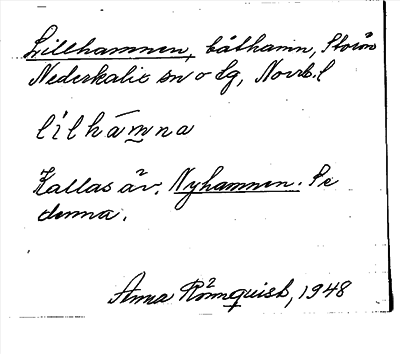 Lillhamnen, båthamn, Storön
Nederkalix sn o lg, Norrb. l
lilhámna
Kallas äv. Nyhamnen. Se
denna.
Anna Rönnquist, 1948